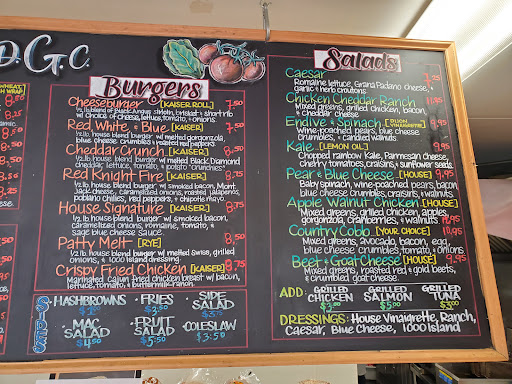 D.G.C.
Burgers
Cheeseburger [KAISER ROLL] 7.50
1/2 lb. blend of Black Angus sirloin, brisket + short rib
w/ choice of cheese, lettuce, tomato, + onions.
Red White & Blue [KAISER] 8.75
1/2 lb. house blend burger w/ melted gorgonzola
blue cheese crumbles + roasted red peppers.
Cheddar Crunch [KAISER] 8.50
1/2 lb. house blend burger w/ melted Black Diamond
cheddar, lettuce, tomato, + potato "crunchies"
Red Knight Fire [KAISER] 8.75
1/2 lb. house blend burger w/ smoked bacon, Mont.
Jack cheese, caramelized onions, roasted jalapeños,
poblano chilies, red peppers, + chipotle mayo.
House Signature [KAISER]
1/2 lb. house blend burger w/ smoked bacon,
caramelized onions, romaine, tomato, +
sage blue cheese sauce.
Patty Melt [RYE] 8.50
1/2 lb. house blend burger w/ melted swiss, grilled
onions, + 1000 island dressing.
Crispy Fried Chicken [KAISER] 8.75
Marinated cajun fried chicken breast w/ bacon,
lettuce, tomato, + buttermilk ranch.
Sides
HASHBROWNS
FRIES
SIDE SALAD
MAC SALAD $4.50
FRUIT SALAD $5.50
COLESLAW $3.50
Salads
Caesar 7.25
Romaine lettuce, Grana Padano cheese, +
garlic + herb croutons.
Chicken Cheddar Ranch 11.95
Mixed greens, grilled chicken, bacon,
+ cheddar cheese
Endive & Spinach [DIJON VINAIGRETTE] 9.95
Wine-poached pears, blue cheese
crumbles, + candied walnuts.
Kale [LEMON OIL] 9.95
Chopped rainbow Kale, Parmesan cheese,
cherry tomatoes, craisins, + sunflower seeds
Pear & Blue Cheese [HOUSE] 9.95
Baby spinach, wine-poached pears, bacon
blue cheese crumbles, craisins, + walnuts
Apple Walnut Chicken [HOUSE]
Mixed greens, grilled chicken, apples,
gorgonzola, cranberries, + walnuts 11.95
Country Cobb [YOUR CHOICE] 10.95
Mixed greens, avocado, bacon, egg,
blue cheese crumbles, tomato, + onions
Beet & Goat Cheese [HOUSE] 9.95
Mixed greens, roasted red + gold beets,
+ crumbled goat cheese.
ADD: GRILLED CHICKEN GRILLED SALMON $5.00 GRILLED TUNA
DRESSINGS: House Vinaigrette, Ranch,
Caesar, Blue Cheese, 1000 Island